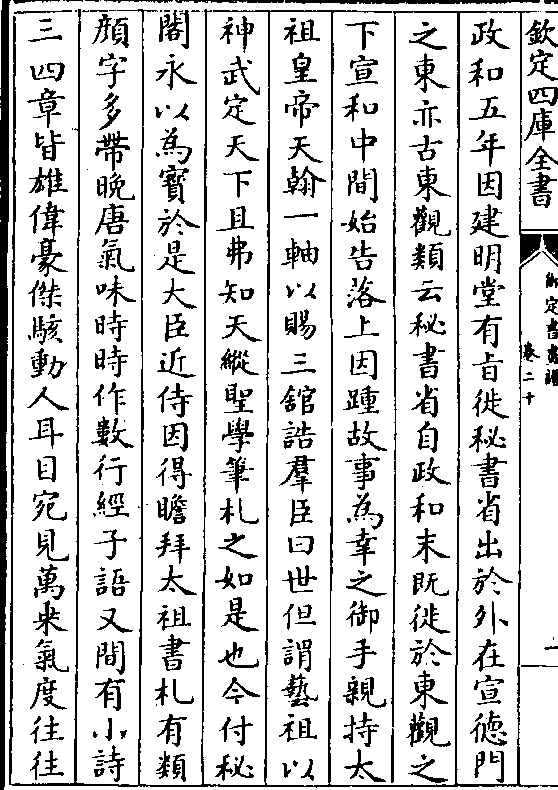 欽定四庫全書
御定書畫譜
卷二十
政和五年因建明堂有旨徙秘書省出於外在宣德門
之東亦古東觀類云秘書省自政和末既徙於東觀之
下宣和中間始告落上因踵故事為幸之御手親持太
祖皇帝天翰一軸以賜三舘誥羣臣曰世但謂藝祖以
神武定天下且弗知天縱聖學筆札之如是也今付秘
閣永以為寳於是大臣近侍因得瞻拜太祖書札有類
顔字多帶晚唐氣味時時作數行經子語又間有小詩
三四章皆雄偉豪傑駭動人耳目宛見萬乗氣度往往